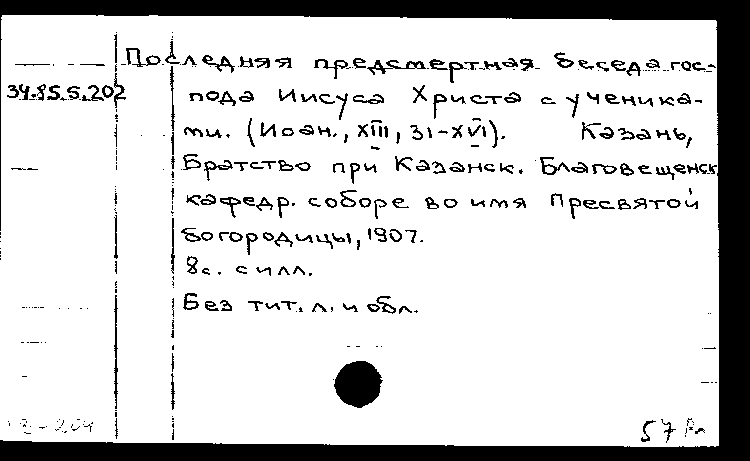 Последняя предсмертная беседа гос-
34.85.5.202 пода Иисуса Христа с ученика-
ми. (Иоан., XIII, 31-XVI). Казань,
Братство при Казанск. Благовещенск
кафедр. соборе во имя Пресвятой
богородицы, 1907.
8с. с илл.
Без тит. л. и обл.
57